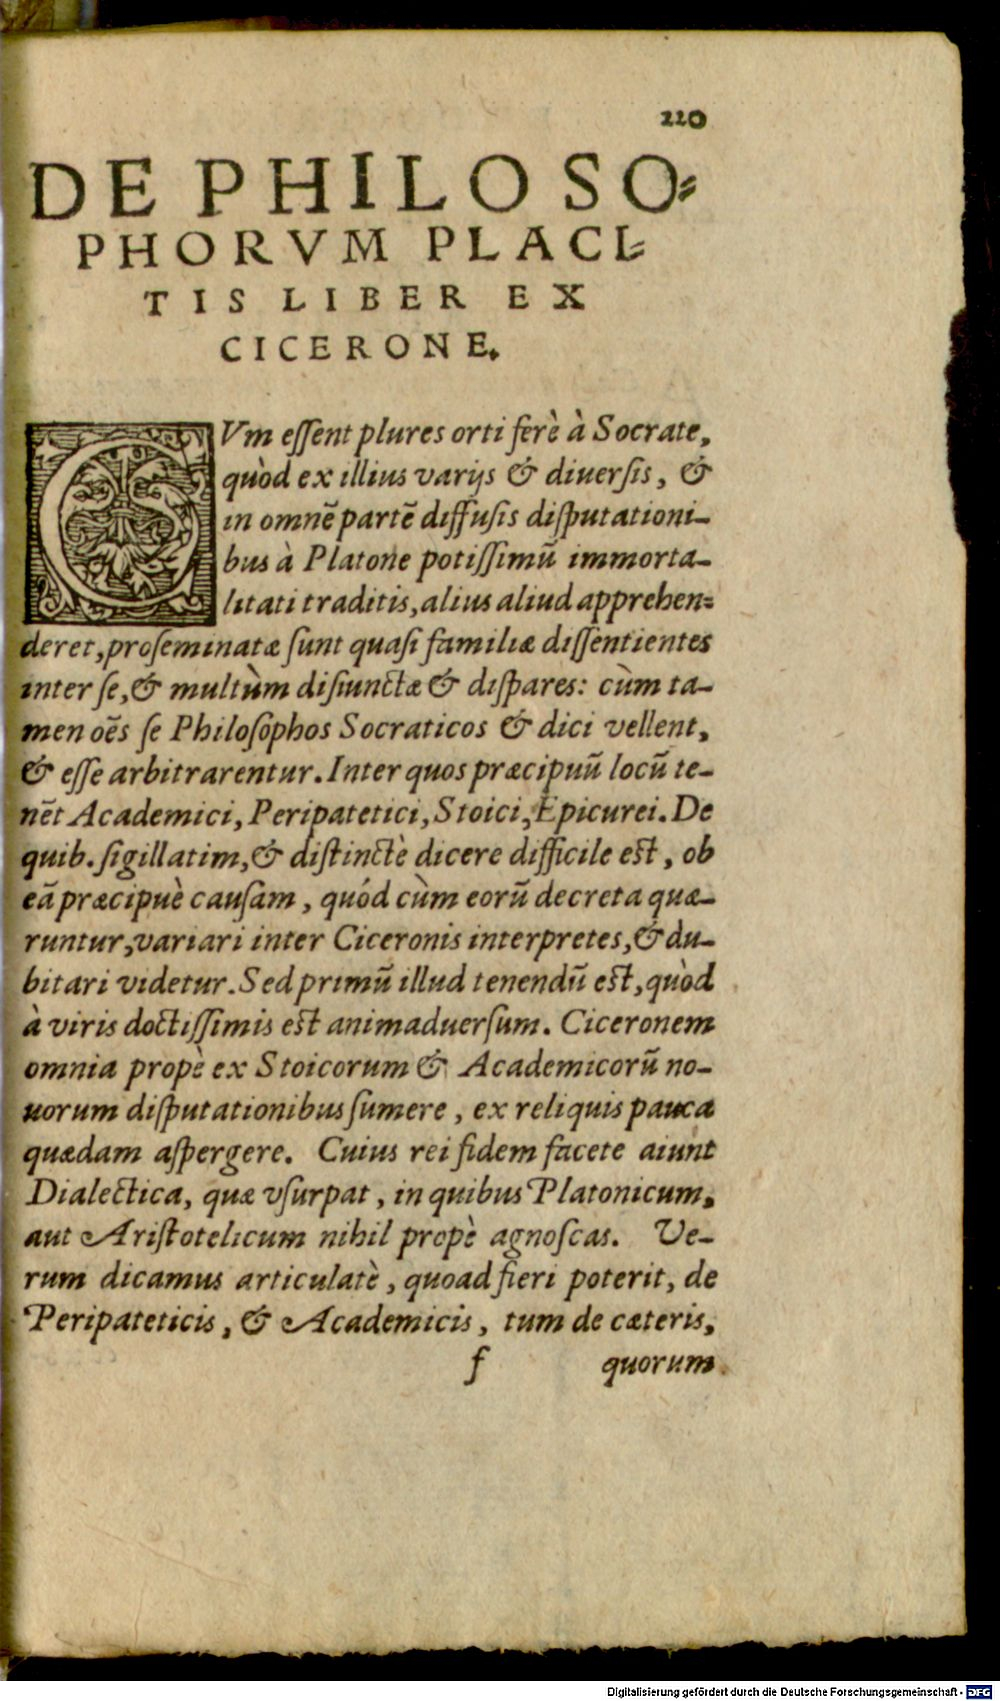 220
DE PHILOSO⸗
PHORVM PLACI⸗
TIS LIBER EX
CICERONE.
CVm eſſent plures orti ferè à Socrate,
quòd ex illius varijs & diuerſis, &
in omnē partē diffuſis diſputationi-
bus à Platone potiſſimū immorta-
litati traditis, alius aliud apprehen⸗
deret, proſeminatæ ſunt quaſi familiæ diſſentientes
inter ſe, & multùm diſiunctæ & diſpares: cùm ta-
men oēs ſe Philoſophos Socraticos & dici vellent,
& eſſe arbitrarentur. Inter quos præcipuū locū te-
nēt Academici, Peripatetici, Stoici, Epicurei. De
quib. ſigillatim, & diſtinctè dicere difficile eſt, ob
eā præcipuè cauſam, quód cùm eorū decreta quæ-
runtur, variari inter Ciceronis interpretes, & du-
bitari videtur. Sed primū illud tenendū eſt, quòd
à viris doctiſſimis eſt animaduerſum. Ciceronem
omnia propè ex Stoicorum & Academicorū no-
uorum diſputationibus ſumere, ex reliquis pauca
quædam aſpergere. Cuius rei fidem facete aiunt
Dialectica, quæ vſurpat, in quibus Platonicum,
aut Ariſtotelicum nihil propè agnoſcas. Ve-
rum dicamus articulatè, quoad fieri poterit, de
Peripateticis, & Academicis, tum de cæteris,
f quorum
Digitalisierung gefördert durch die Deutsche Forschungsgemeinschaft - DFG